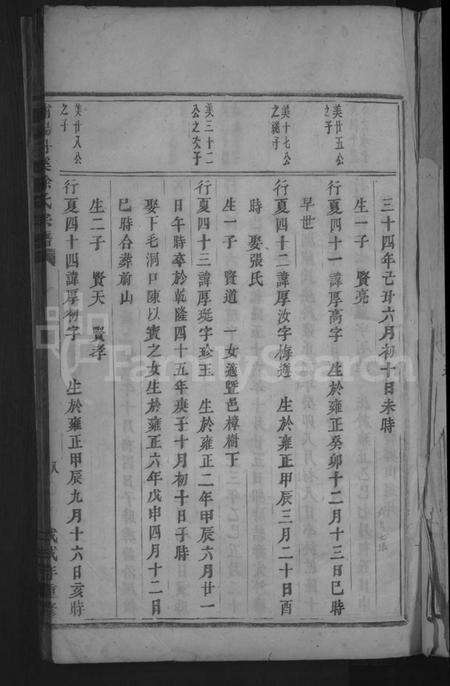 三十四年己丑六月初十日未時
生一子 賢亮
美廿五公
之子
行夏四十一諱厚高字 生於雍正癸卯十二月十三日巳時
早世
美十七公
之繼子
行夏四十二諱厚汝字梅選 生於雍正甲辰三月二十日酉
時 娶張氏
生一子 賢道 一女適暨邑樟樹下
美三十二
公之次子
行夏四十三諱厚珽字珍玉 生於雍正二年甲辰六月廿一
日午時卒於乾隆四十五年庚子十月初十日子時
娶下毛洞口陳以賓之女生於雍正六年戊申四月十二日
巳時合葬前山
生二子 賢天 賢孝
美廿八公
之子
行夏四十四諱厚初字 生於雍正甲辰九月十六日亥時
FamilySearch